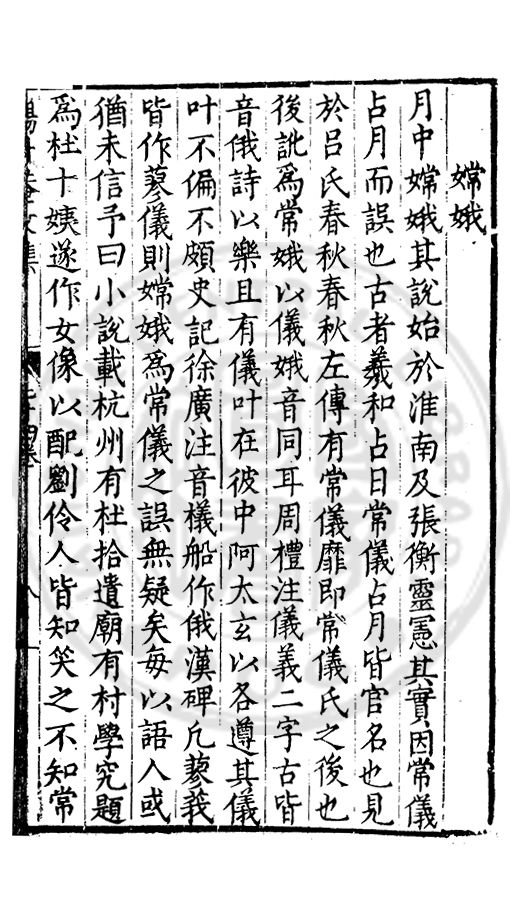 嫦娥
月中嫦娥其說始於淮南及張衡靈憲其實因常儀
占月而誤也古者羲和占日常儀占月皆官名也見
於呂氏春秋春秋左傳有常儀靡即常儀氏之後也
後訛爲常娥以儀娥音同耳周禮注儀義二字古皆
音俄詩以樂且有儀叶在彼中阿太玄以各遵其儀
叶不偏不頗史記徐廣注音檥船作俄漢碑凡蓼莪
皆作蓼儀則嫦娥爲常儀之誤無疑矣每以語人或
猶未信予曰小說載杭州有杜拾遺廟有村學究題
爲杜十姨遂作女像以配劉伶人皆知笑之不知常